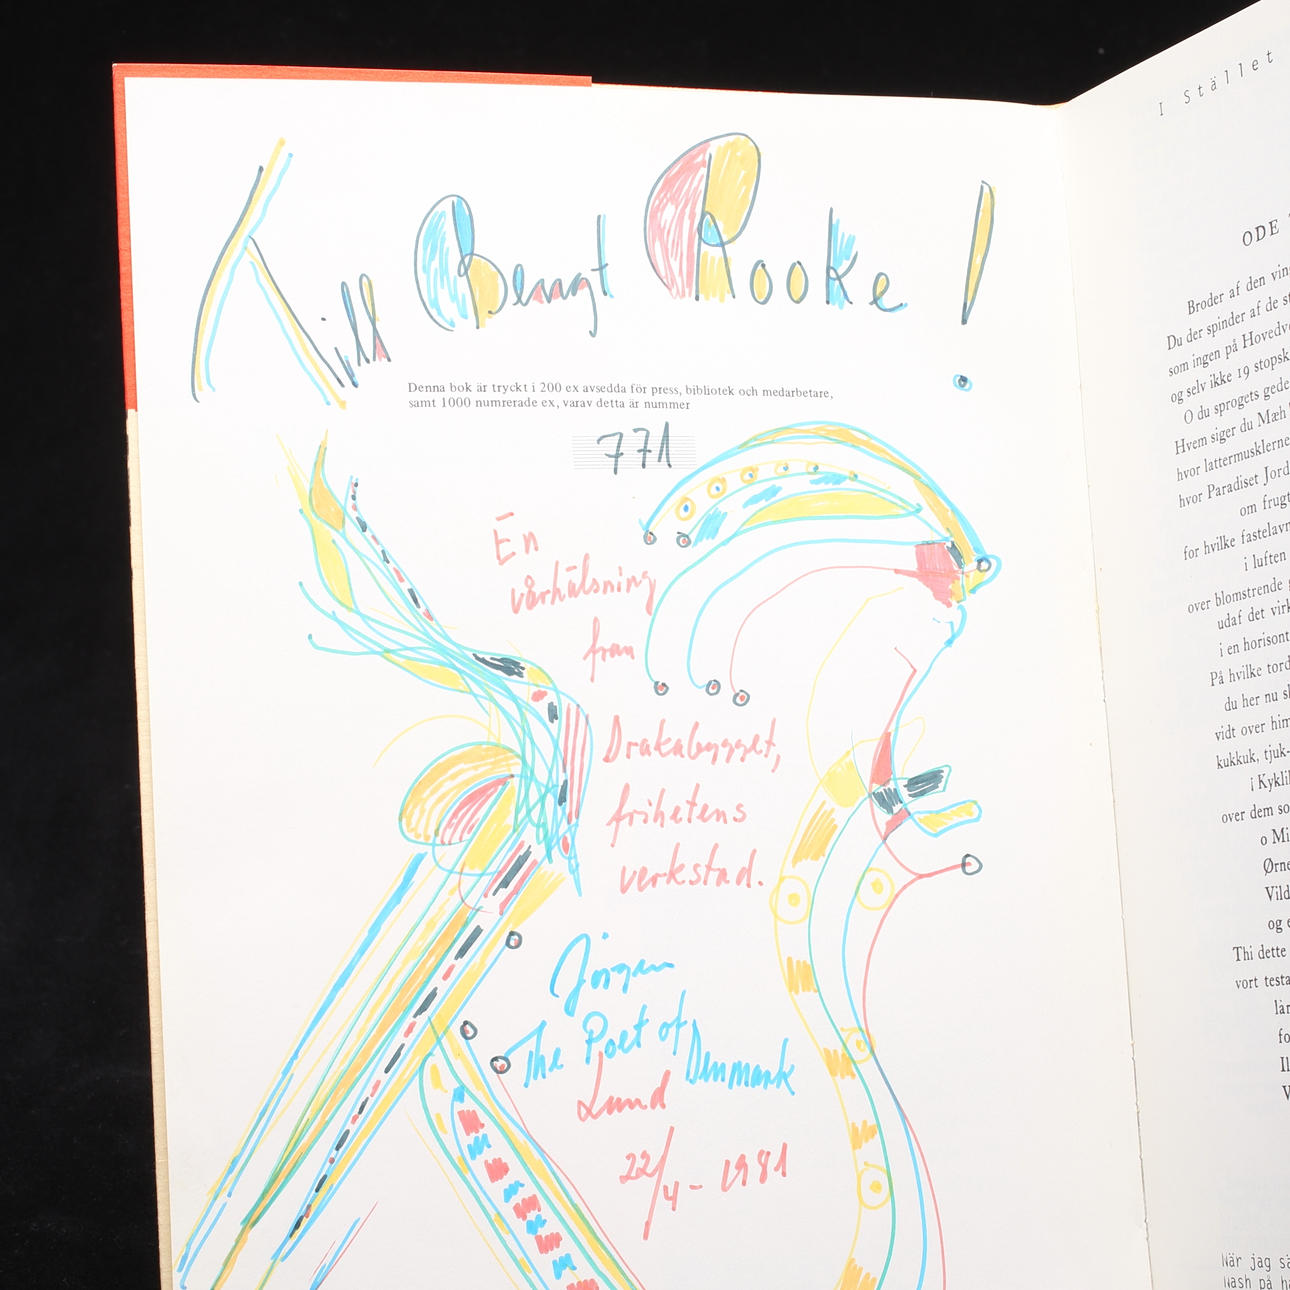 Till Bengt Rooke!
Denna bok är tryckt i 200 ex avsedda för press, bibliotek och medarbetare,
samt 1000 numrerade ex, varav detta är nummer
771
En
vårhälsning
från
Drakabygget,
frihetens
verkstad.
Jörgen
The Poet of Denmark
Lund
22/4 - 1981
I Stället
ODE
Broder af den
Du der spinder af de
som ingen på
og selv ikke 19
O du sprogets
Hvem siger du Mæh
hvor lattermusklerne
hvor Paradiset
om
for hvilke
i luften
over blomstrende
udaf det
i en
På hvilke
du her nu
vidt over
kukkuk,
i
over dem
o
og
Thi dette
vort
När jag
Nash på